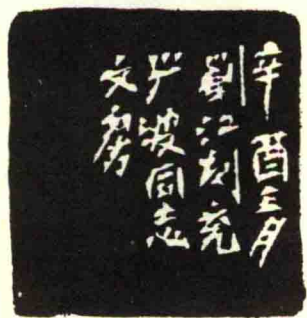 辛酉三月
劉江刻充
波同志
文房